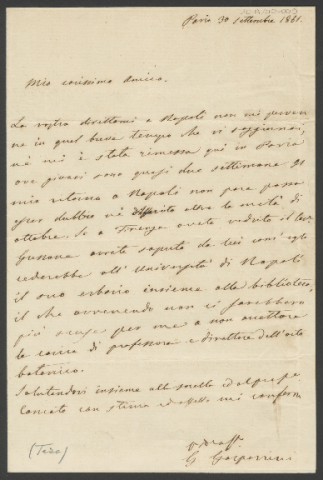 Pavia 30 settembre 1861.
Mio carissimo Amico.
La vostra direttami a Napoli non mi perven
ne in quel breve tempo che vi soggiornai,
nè mi è stata rimessa qui in Pavia
ove giunsi sono quasi due settimane. Il
mio ritorno a Napoli non pare possa
esser dubbio nè differito oltre la metà di
ottobre. Se a Firenze avete veduto il
Gussone avrete saputo da lui com' egli
cederebbe all' Università di Napoli
il suo erbario insieme alla biblioteca,
il che avvenendo non ci sarebbero
più scuse per me a non accettare
la carica di professore e direttore dell'orto
botanico.
Salutandovi insieme alla
con stima ed affetto mi confermo
V. aff.
G. Gasparrini
(Tedo)